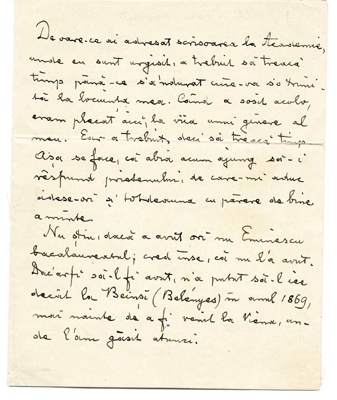 De oare-ce ai adresat scrisoarea la Academie,
unde eu sunt urgisit, a trebuit să treacă
timp până-ce s'a'ndurat cine-va s'o trimi-
tă la locuința mea. Când a sosit acolo,
eram plecat aici, la viia unui ginere al
meu. Ear a trebuit, deci să treacă timp.
Așa se face, că abia acum ajung să-i
răspund prietenului, de care-mi aduc
adese-ori și totdeauna cu părere de bine
aminte.
Nu știu, dacă a avut ori nu Eminescu
bacalaureatul; cred însă, că nu l'a avut.
Dac'ar fi să-l fi avut, n'a putut să-l iee
decât la Beinș (Belényes) în anul 1869,
mai nainte de a fi venit la Viena, un-
de l'am găsit atunci.